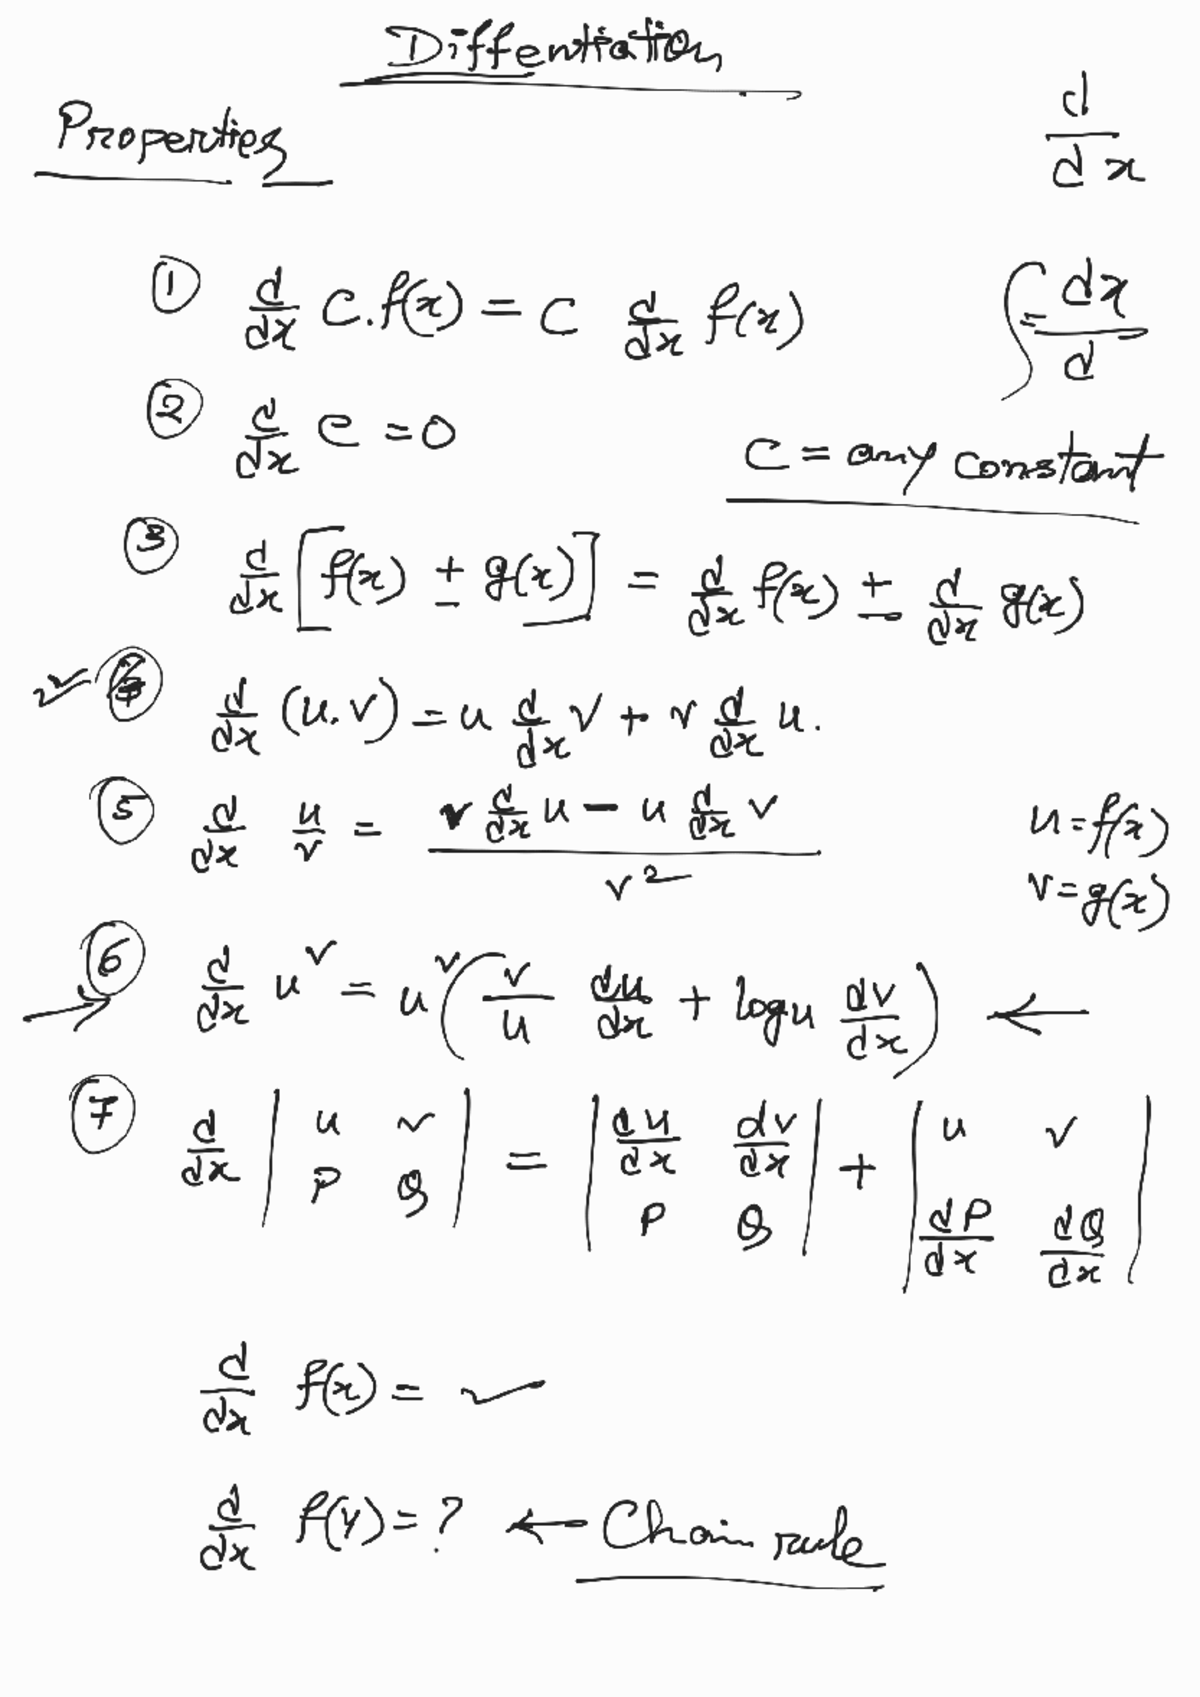 Diffentiation
Properties
d/dx
① d/dx C.f(x) = C d/dx f(x)
∫ = dx/d
② d/dx C = 0
C = any constant
③ d/dx [f(x) ± g(x)] = d/dx f(x) ± d/dx g(x)
④ d/dx (u.v) = u d/dx v + v d/dx u.
⑤ d/dx u/v = (v d/dx u − u d/dx v)/v²
u = f(x)
v = g(x)
→ ⑥ d/dx u^v = u^v (v/u du/dx + log u dv/dx) ←
⑦ d/dx | u v ; P Q | = | du/dx dv/dx ; P Q | + | u v ; dP/dx dQ/dx |
d/dx f(x) = ✓
d/dx f(y) = ? ← Chain rule